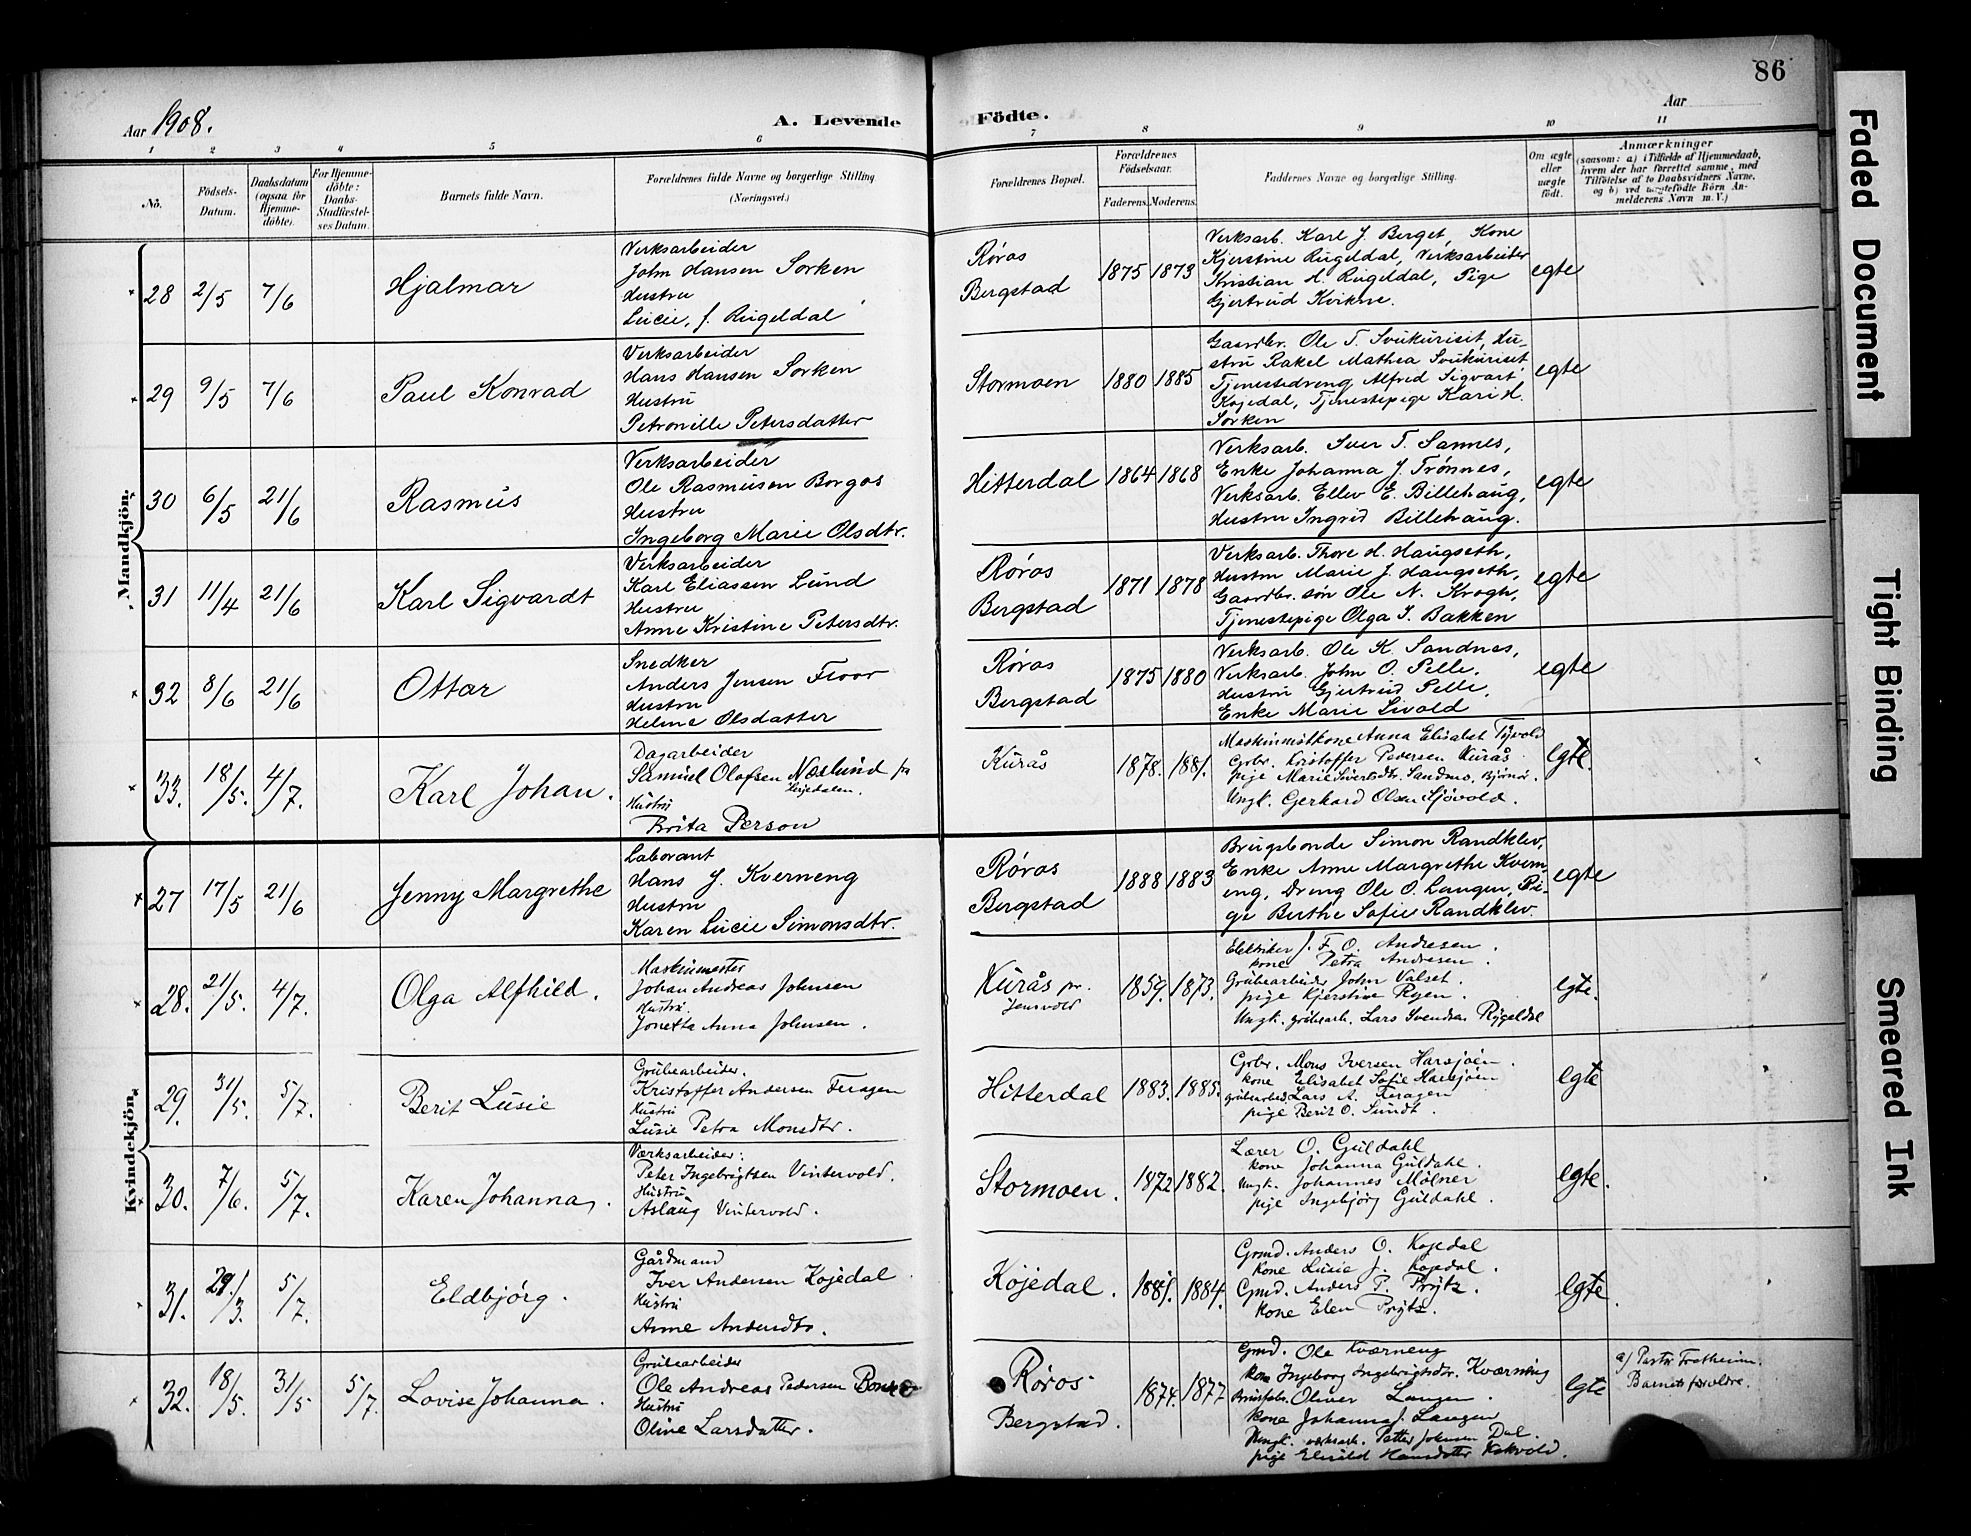 86
Aar 1908.
A. Levende Födte.
Aar
1 2 3 4 5 6 7 8 9 10 11
No.
Födsels-Datum.
Daabsdatum (ogsaa for Hjemme-döbte).
For Hjemme-döbte: Daabs-Stadfæstel-ses Datum.
Barnets fulde Navn.
Forældrenes fulde Navne og borgerlige Stilling (Næringsvei.)
Forældrenes Bopæl.
Forældrenes Födselsaar.
Faderens. Moderens.
Faddernes Navne og borgerlige Stilling.
Om ægte eller uægte födt.
Anmærkninger
(saasom: a) i Tilfælde af Hjemmedaab, hvem der har forrettet samme, med Tilföielse af to Daabsvidners Navne, og b) ved uægtefödte Börn An-melderens Navn m. V.)
Mandkjön.
28 2/5 7/6 Hjalmar
Verksarbeider
John Hansen Sorken
Hustru
Lucie, f. Rugeldal
Røros
Bergstad
1875 1873
Verksarb. Karl J. Berget, Kone
Kjerstine Rugeldal, Verksarbeider
Kristian A. Rugeldal, Pige
Gjertrud Kvikne.
egte
29 9/5 7/6 Paul Konrad
Verksarbeider
Hans Hansen Sorken
Hustru
Petronille Petersdatter
Stormoen
1880 1885
Gaardbr. Ole T. Svukuriset, Hu-
stru Rakel Mathea Svukuriset
Tjenestedreng Alfred Sigvart
Kojedal, Tjenestepige Kari H.
Sorken
egte
30 6/5 21/6 Rasmus
Verksarbeider
Ole Rasmusen Borgos
Hustru
Ingeborg Marie Olsdtr.
Hitterdal
1864 1868
Verksarb. Iver T. Sannes,
Enke Johanna J. Trønnes,
Verksarb. Ellev E. Billehaug,
Hustru Ingrid Billehaug.
egte
31 11/4 21/6 Karl Sigvardt
Verksarbeider
Karl Eliassen Lund
Hustru
Anne Kristine Petersdtr.
Røros
Bergstad
1871 1878
Verksarb. Thore H. Haugseth,
Hustru Marie J. Haugseth,
Gaardbr. søn Ole N. Krogh,
Tjenestepige Olga I. Bakken
egte
32 8/6 21/6 Ottar
Snedker
Anders Jensen Floor
Hustru
Helene Olsdatter
Røros
Bergstad
1875 1880
Verksarb. Ole K. Sandnes,
Verksarb. John O. Pelle,
Hustru Gjertrud Pelle,
Enke Marie Sivold
egte
33. 18/5. 4/7. Karl Johan.
Dagarbeider
Samuel Olofsen Næslund fra
Herjedalen.
Hustru
Brita Person
Kurås
1878. 1881.
Anna Elisabet Tyvold
Grbr. Kristoffer Pedersen Kurås
pige Marie Sivertsdtr. Sandnes,
Ungk. Gerhard Olsen Sjøvold.
egte.
Kvindekjön.
27 17/5 21/6 Jenny Margrethe
Laborant
Hans J. Kverneng
Hustru
Karen Lucie Simonsdtr.
Røros
Bergstad
1888 1883
Brugsbonde Simon Randklev,
Enke Anne Margrethe Kvern-
eng, Dreng Ole O. Langen, Pi-
ge Berthe Sofie Randklev.
egte
28. 21/5. 4/7. Olga Alfhild.
Maskinmester
Johan Andreas Johnsen
Hustru.
Jonetta Anna Johnsen.
Kurås pr.
Jensvold
1859. 1873.
Elektriker J. F. O. Andresen.
kone Petra Andresen.
Grubearbeider John Valset.
pige Kjerstine Ryen.
Ungk. grubearb. Lars Svendsen Rygeldal
egte.
29. 31/5. 5/7. Berit Lusie
Grubearbeider.
Kristoffer Andersen Feragen
Hustru
Lusie Petra Monsdtr.
Hitterdal
1883. 1885.
Grbr. Mons Iversen Harsjøen.
kone Elisabet Sofie Harsjøen
grubearbeid. Lars A. Feragen
pige Berit O. Sundt.
egte
30. 7/6. 5/7. Karen Johanna,
Værksarbeider:
Peter Ingebrigtsen Vintervold.
Hustru
Aslaug Vintervold.
Stormoen.
1872 1882.
Lærer O. Guldahl
kone Johanna Guldahl.
Ungk. Johannes Mølner
pige Ingebjørg Guldahl.
egte.
31. 29/3. 5/7. Eldbjørg.
Gårdmand
Iver Andersen Kojedal.
Hustru
Anne Andersdtr.
Kojedal.
1884.
Grmd. Anders O. Kojedal
kone Lusie J. Kojedal.
Gmd. Anders P. Prytz.
kone Elen Prytz.
egte.
32. 18/5. 31/5 5/7. Lovise Johanna.
Grubearbeider
Ole Andreas Pedersen
Hustru
Oline Larsdatter.
Røros-
Bergstad.
1874. 1877
Gmd. Ole Kværneng
kone Ingeborg Ingebrigtsdtr. Kværneng
Oliver Langen.
kone Johanna J. Langen
Ungk. værksarb. Petter Johnsen Dal.
pige Hansdatter Kokvold.
egte
a) Pastor Frotheim.
Barnets forældre.
Faded Document
Tight Binding
Smeared Ink